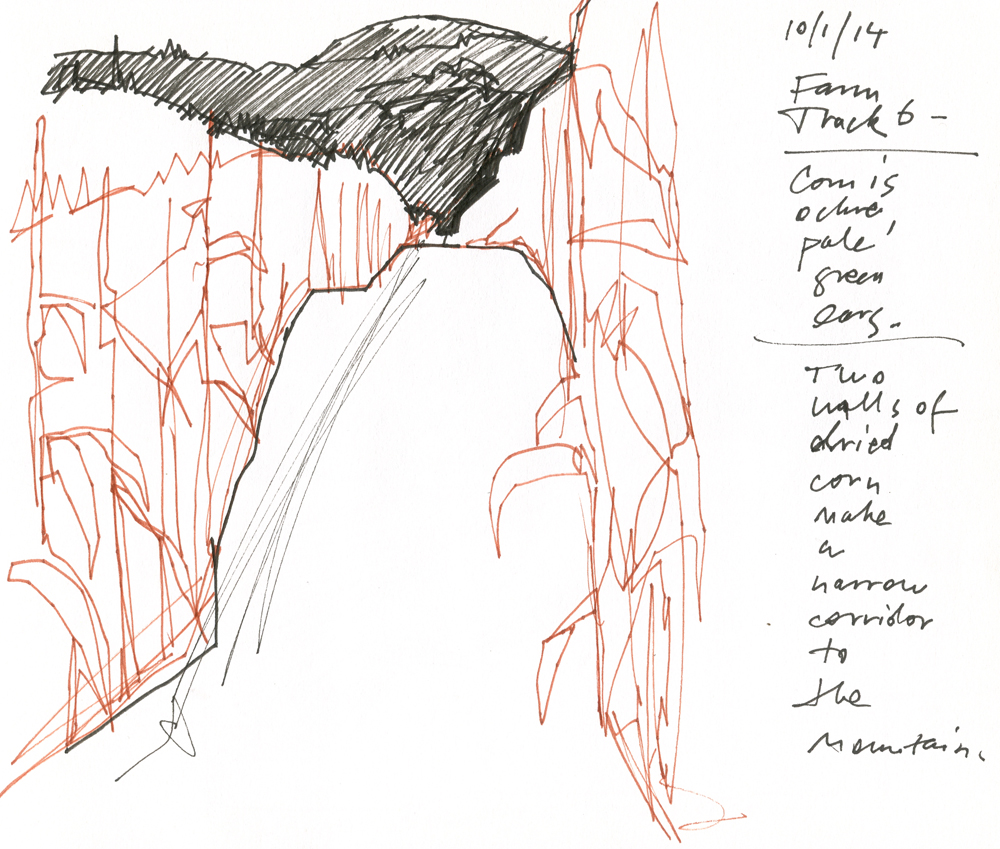 10/1/14
Farm
Track 6 -
Corn is
ochre,
pale
green
ears.
Two
walls of
dried
corn
make
a
narrow
corridor
to
the
mountain.